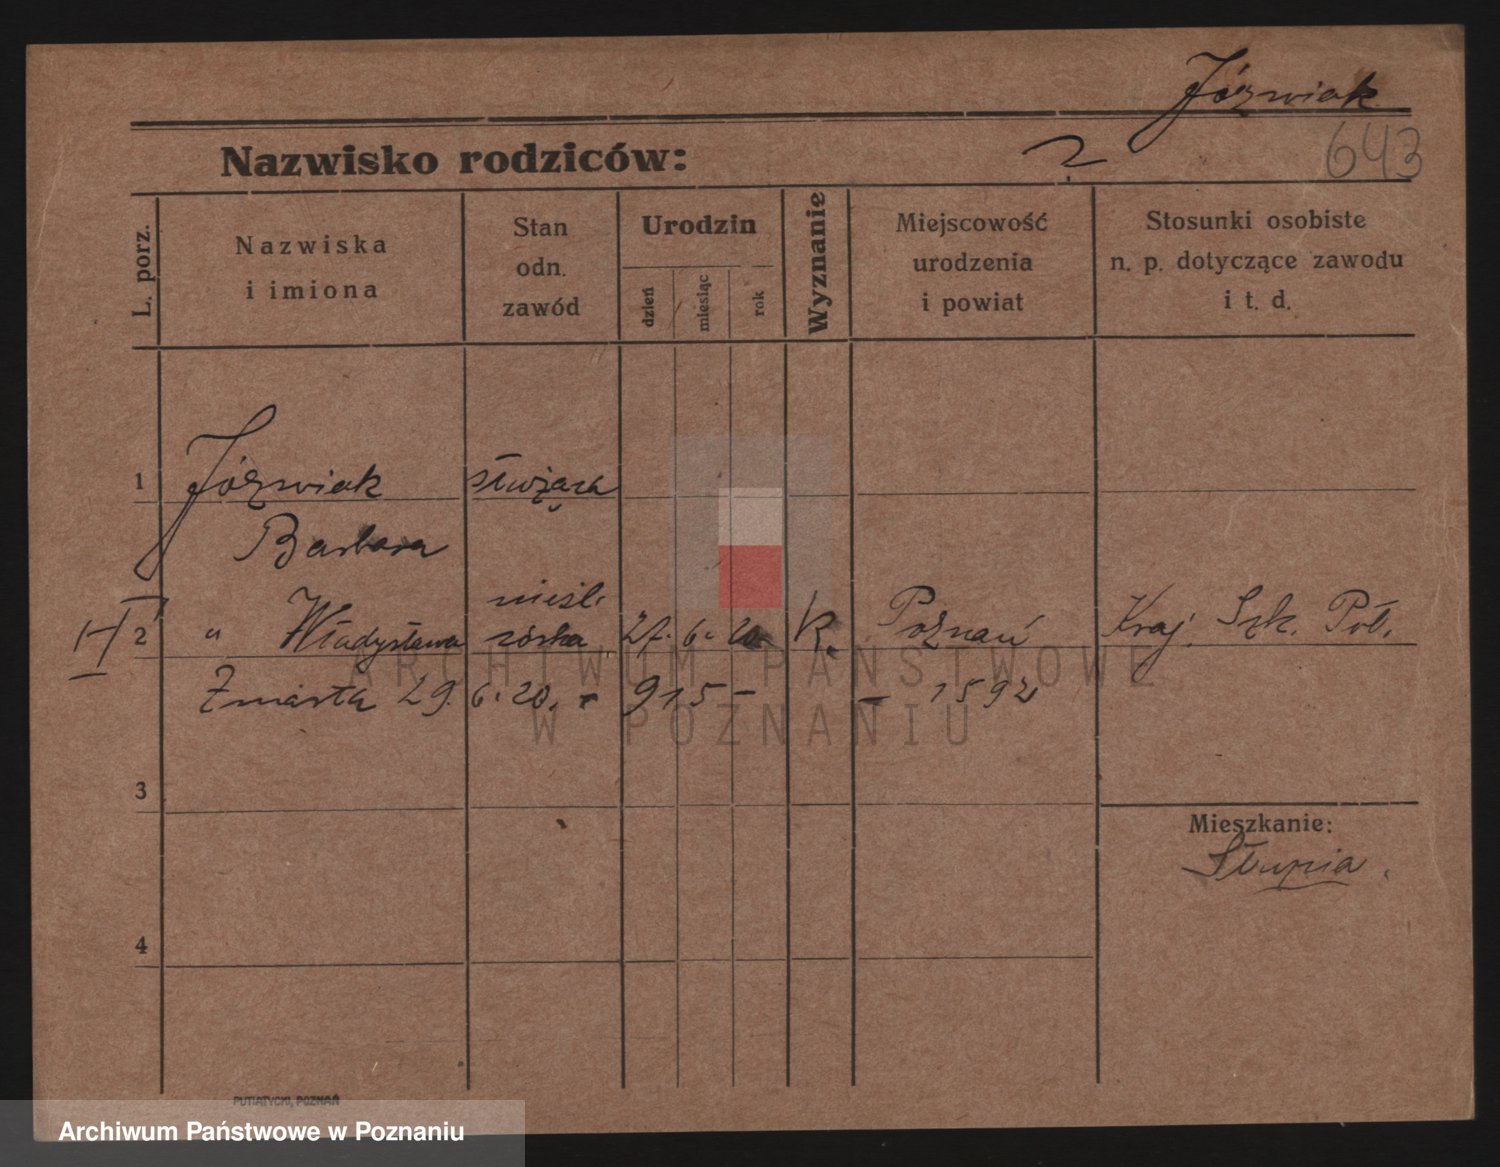 Józwiak
Nazwisko rodziców: ? 643
L. porz.
Nazwiska
i imiona
Stan
odn.
zawód
Urodzin
dzień
miesiąc
rok
Wyznanie
Miejscowość
urodzenia
i powiat
Stosunki osobiste
n. p. dotyczące zawodu
i t. d.
1 Józwiak służąca
Barbara
nieśl.
2 " Władysława córka 27. 6. 20 K. Poznań Kraj. Szk. Poł.
Zmarła 29. 6. 20. - 915 - - 1592
3
Mieszkanie:
Słupia.
4
ARCHIWUM PAŃSTWOWE
W POZNANIU
PUTIATYCKI, POZNAŃ
Archiwum Państwowe w Poznaniu